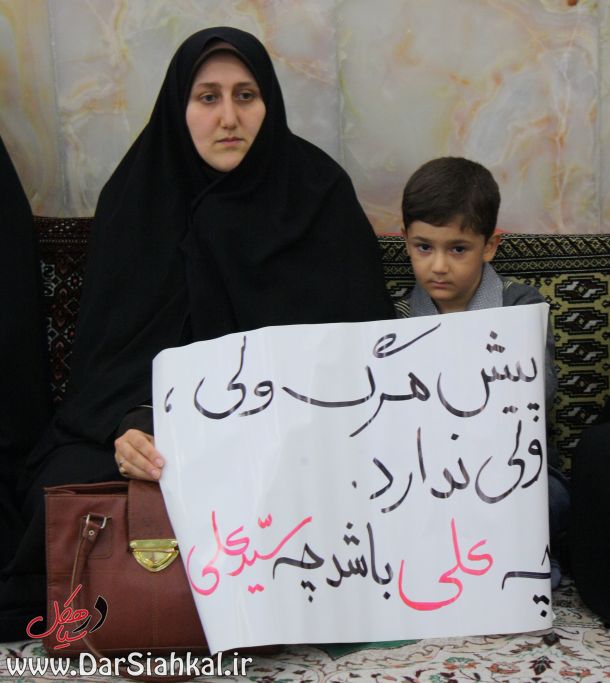 پیش مرگ ولی،
ولی ندارد.
چه علی باشد چه سیّد علی
در سیاهکل
www.DarSiahkal.ir